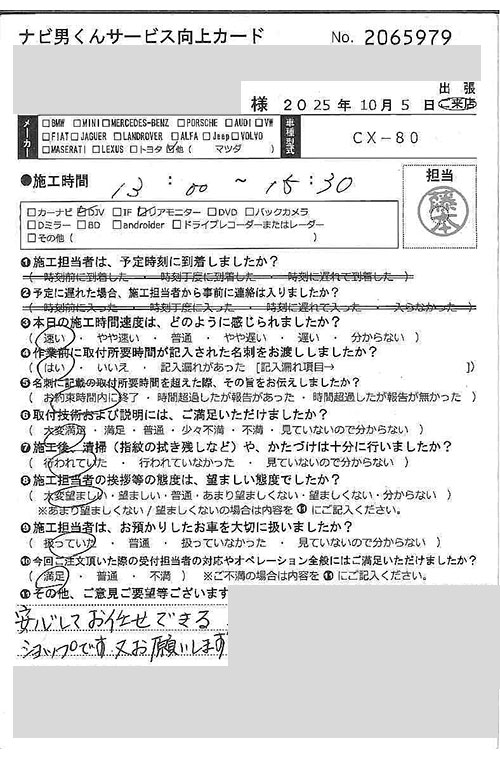 ナビ男くんサービス向上カード No. 2065979
出張
様 2025年10月5日 ご来店
メーカー
□BMW □MINI □MERCEDES-BENZ □PORSCHE □AUDI □VW
□FIAT □JAGUER □LANDROVER □ALFA □Jeep □VOLVO
□MASERATI □LEXUS □トヨタ ☑他( マツダ )
車種型式
CX-80
●施工時間 13:00 ~ 15:30
担当
藤本
□カーナビ ☑DJV □IF ☑リアモニター □DVD □バックカメラ
□Dミラー □BD □androider □ドライブレコーダーまたはレーダー
□その他( )
❶施工担当者は、予定時刻に到着しましたか?
( 時刻前に到着した ・ 時刻丁度に到着した ・ 時刻に遅れて到着した )
❷予定に遅れた場合、施工担当者から事前に連絡は入りましたか?
( 時刻前に入った ・ 時刻丁度に入った ・ 時刻に遅れて入った ・ 入らなかった )
❸本日の施工時間速度は、どのように感じられましたか?
( 速い ・ やや速い ・ 普通 ・ やや遅い ・ 遅い ・ 分からない )
❹作業前に取付所要時間が記入された名刺をお渡ししましたか?
( はい ・ いいえ ・ 記入漏れがあった [記入漏れ項目→ ]漏れがあった )
❺名刺に記載の取付所要時間を超えた際、その旨をお伝えしましたか?
( お約束時間内に終了 ・ 時間超過したが報告があった ・ 時間超過したが報告が無かった )
❻取付技術および説明には、ご満足いただけましたか?
( 大変満足 ・ 満足 ・ 普通 ・ 少々不満 ・ 不満 ・ 見ていないので分からない )
❼施工後、清掃(指紋の拭き残しなど)や、かたづけは十分に行いましたか?
( 行われていた ・ 行われていなかった ・ 見ていないので分からない )
❽施工担当者の挨拶等の態度は、望ましい態度でしたか?
( 大変望ましい ・ 望ましい ・ 普通 ・ あまり望ましくない ・ 望ましくない ・ 分からない )
※あまり望ましくない / 望ましくないの場合は内容を⓫にご記入ください。
❾施工担当者は、お預かりしたお車を大切に扱いましたか?
( 扱っていた ・ 普通 ・ 扱っていなかった ・ 見ていないので分からない )
❿今回ご注文頂いた際の受付担当者の対応やオペレーション全般にはご満足いただけましたか?
( 満足 ・ 普通 ・ 不満 ) ※ご不満の場合は内容を⓫にご記入ください。
⓫その他、ご意見ご要望等ございます
安心してお任せできる
ショップです 又お願いします